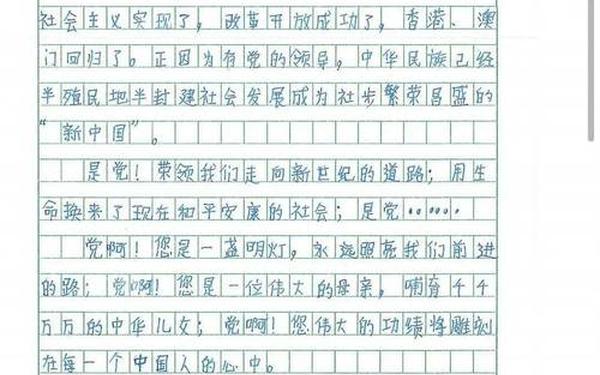 社会主义实现了，改革开放成功了，香港、澳
门回归了。正因为有党的领导，中华民族己经
半殖民地半封建社会发展成为社步繁荣昌盛的
“新中国”。
是党！荣领我们走向新世纪的道路；用生
命换来了现在和平安康的社会；是党……
党啊！您是一盏明灯，永远照亮我们前进
的路；党啊！您是一位伟大的母亲，哺育千千
万万的中华儿女；党啊！您伟大的功绩将雕刻
在每一个中国人的心中。